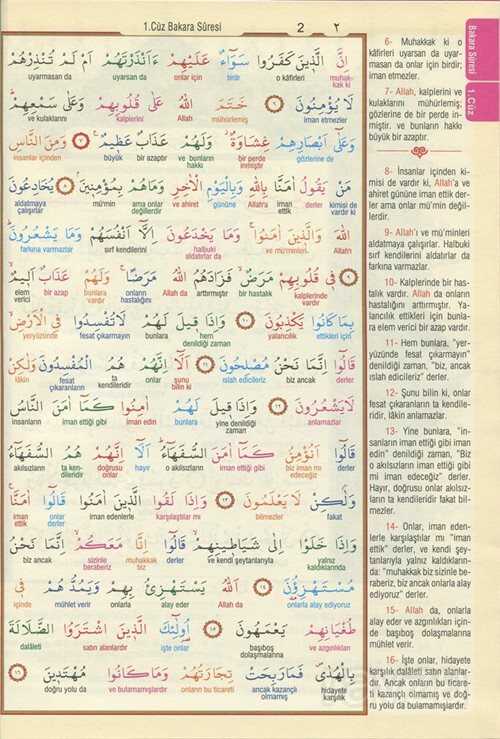 1.Cüz Bakara Sûresi 2 ٢
اِنَّ الَّذِينَ كَفَرُوا سَوَاءٌ عَلَيْهِمْ ءَاَنْذَرْتَهُمْ اَمْ لَمْ تُنْذِرْهُمْ
muhakkak ki o kâfirleri birdir onlar için uyarsan da uyarmasan da
لَا يُؤْمِنُونَ ٦ خَتَمَ اللهُ عَلٰى قُلُوبِهِمْ وَعَلٰى سَمْعِهِمْ
iman etmezler mühürlemiş Allah kalplerini ve kulaklarını
وَعَلٰٓى اَبْصَارِهِمْ غِشَاوَةٌ وَلَهُمْ عَذَابٌ عَظِيمٌ ٧ وَمِنَ النَّاسِ
gözlerine de bir perde inmiştir ve bunların hakkı bir azaptır büyük insanlar içinden
مَنْ يَقُولُ اٰمَنَّا بِاللهِ وَبِالْيَوْمِ الْاٰخِرِ وَمَاهُمْ بِمُؤْمِنِينَ ٨ يُخَادِعُونَ
kimisi de vardır ki derler iman ettik Allah'a gününe ve ahiret ama onlar değillerdir mü'min aldatmaya çalışırlar
اللهَ وَالَّذِينَ اٰمَنُوا وَمَا يَخْدَعُونَ اِلَّٓا اَنْفُسَهُمْ وَمَا يَشْعُرُونَ
Allah'ı ve mü'minleri halbuki aldatırlar da sırf kendilerini farkına varmazlar
٩ فِى قُلُوبِهِمْ مَرَضٌ فَزَادَهُمُ اللهُ مَرَضًا وَلَهُمْ عَذَابٌ اَلِيمٌ
kalplerinde vardır bir hastalık arttırmıştır Allah da onların hastalığını bunlara vardır bir azap elem verici
بِمَا كَانُوا يَكْذِبُونَ ١٠ وَاِذَا قِيلَ لَهُمْ لَاتُفْسِدُوا فِى الْاَرْضِ
ettikleri için yalancılık hem denildiği zaman bunlara fesat çıkarmayın yeryüzünde
قَالُٓوا اِنَّمَا نَحْنُ مُصْلِحُونَ ١١ اَلَٓا اِنَّهُمْ هُمُ الْمُفْسِدُونَ وَلٰكِنْ
derler biz ancak ıslah edicileriz şunu bilin ki onlar ta kendileridir fesat çıkaranların lâkin
لَايَشْعُرُونَ ١٢ وَاِذَا قِيلَ لَهُمْ اٰمِنُوا كَمَٓا اٰمَنَ النَّاسُ
anlamazlar yine denildiği zaman bunlara iman edin iman ettiği gibi insanların
قَالُٓوا اَنُؤْمِنُ كَمَٓا اٰمَنَ السُّفَهَٓاءُ اَلَٓا اِنَّهُمْ هُمُ السُّفَهَٓاءُ
derler biz iman mı edeceğiz iman ettiği gibi o akılsızların hayır doğrusu onlar ta kendileridir akılsızların
وَلٰكِنْ لَايَعْلَمُونَ ١٣ وَاِذَا لَقُوا الَّذِينَ اٰمَنُوا قَالُٓوا اٰمَنَّا
fakat bilmezler karşılaştılar mı iman edenlerle onlar derler iman ettik
وَاِذَا خَلَوْا اِلٰى شَيَاطِينِهِمْ قَالُٓوا اِنَّا مَعَكُمْ اِنَّمَا نَحْنُ
yalnız kaldıklarında ve kendi şeytanlarıyla derler muhakkak biz sizinle beraberiz biz ancak
مُسْتَهْزِؤُنَ ١٤ اَللهُ يَسْتَهْزِئُ بِهِمْ وَيَمُدُّهُمْ فِى
onlarla alay ediyoruz Allah da alay eder onlarla mühlet verir içinde
طُغْيَانِهِمْ يَعْمَهُونَ ١٥ اُولٰٓئِكَ الَّذِينَ اشْتَرَوُا الضَّلَالَةَ
ve azgınlıkları başıboş dolaşmalarına işte onlar satın alanlardır dalâleti
بِالْهُدٰى فَمَارَبِحَتْ تِجَارَتُهُمْ وَمَاكَانُوا مُهْتَدِينَ ١٦
hidayete karşılık ancak kazançlı olmamış onların bu ticareti ve bulamamışlardır doğru yolu da
Bakara Sûresi
1.Cüz
6- Muhakkak ki o
kâfirleri uyarsan da uyar-
masan da onlar için birdir;
iman etmezler.
7- Allah, kalplerini ve
kulaklarını mühürlemiş;
gözlerine de bir perde in-
miştir. ve bunların hakkı
büyük bir azaptır.
8- İnsanlar içinden ki-
misi de vardır ki, Allah'a ve
ahiret gününe iman ettik der-
ler ama onlar mü'min değil-
lerdir.
9- Allah'ı ve mü'minleri
aldatmaya çalışırlar. Halbuki
sırf kendilerini aldatırlar da
farkına varmazlar.
10- Kalplerinde bir has-
talık vardır. Allah da onların
hastalığını arttırmıştır. Ya-
lancılık ettikleri için bunla-
ra elem verici bir azap vardır.
11- Hem bunlara, "yer-
yüzünde fesat çıkarmayın"
denildiği zaman, "biz, ancak
ıslah edicileriz" derler.
12- Şunu bilin ki, onlar
fesat çıkaranların ta kendile-
ridir, lâkin anlamazlar.
13- Yine bunlara, "in-
sanların iman ettiği gibi iman
edin" denildiği zaman, "Biz
o akılsızların iman ettiği gibi
mi iman edeceğiz" derler.
Hayır, doğrusu onlar akılsız-
ların ta kendileridir fakat bil-
mezler.
14- Onlar, iman eden-
lerle karşılaştılar mı "iman
ettik" derler, ve kendi şey-
tanlarıyla yalnız kaldıkların-
da: "muhakkak biz sizinle be-
raberiz, biz ancak onlarla alay
ediyoruz" derler.
15- Allah da, onlarla
alay eder ve azgınlıkları için-
de başıboş dolaşmalarına
mühlet verir.
16- İşte onlar, hidayete
karşılık dalâleti satın alanlar-
dır. Ancak onların bu ticare-
ti kazançlı olmamış ve doğ-
ru yolu da bulamamışlardır.